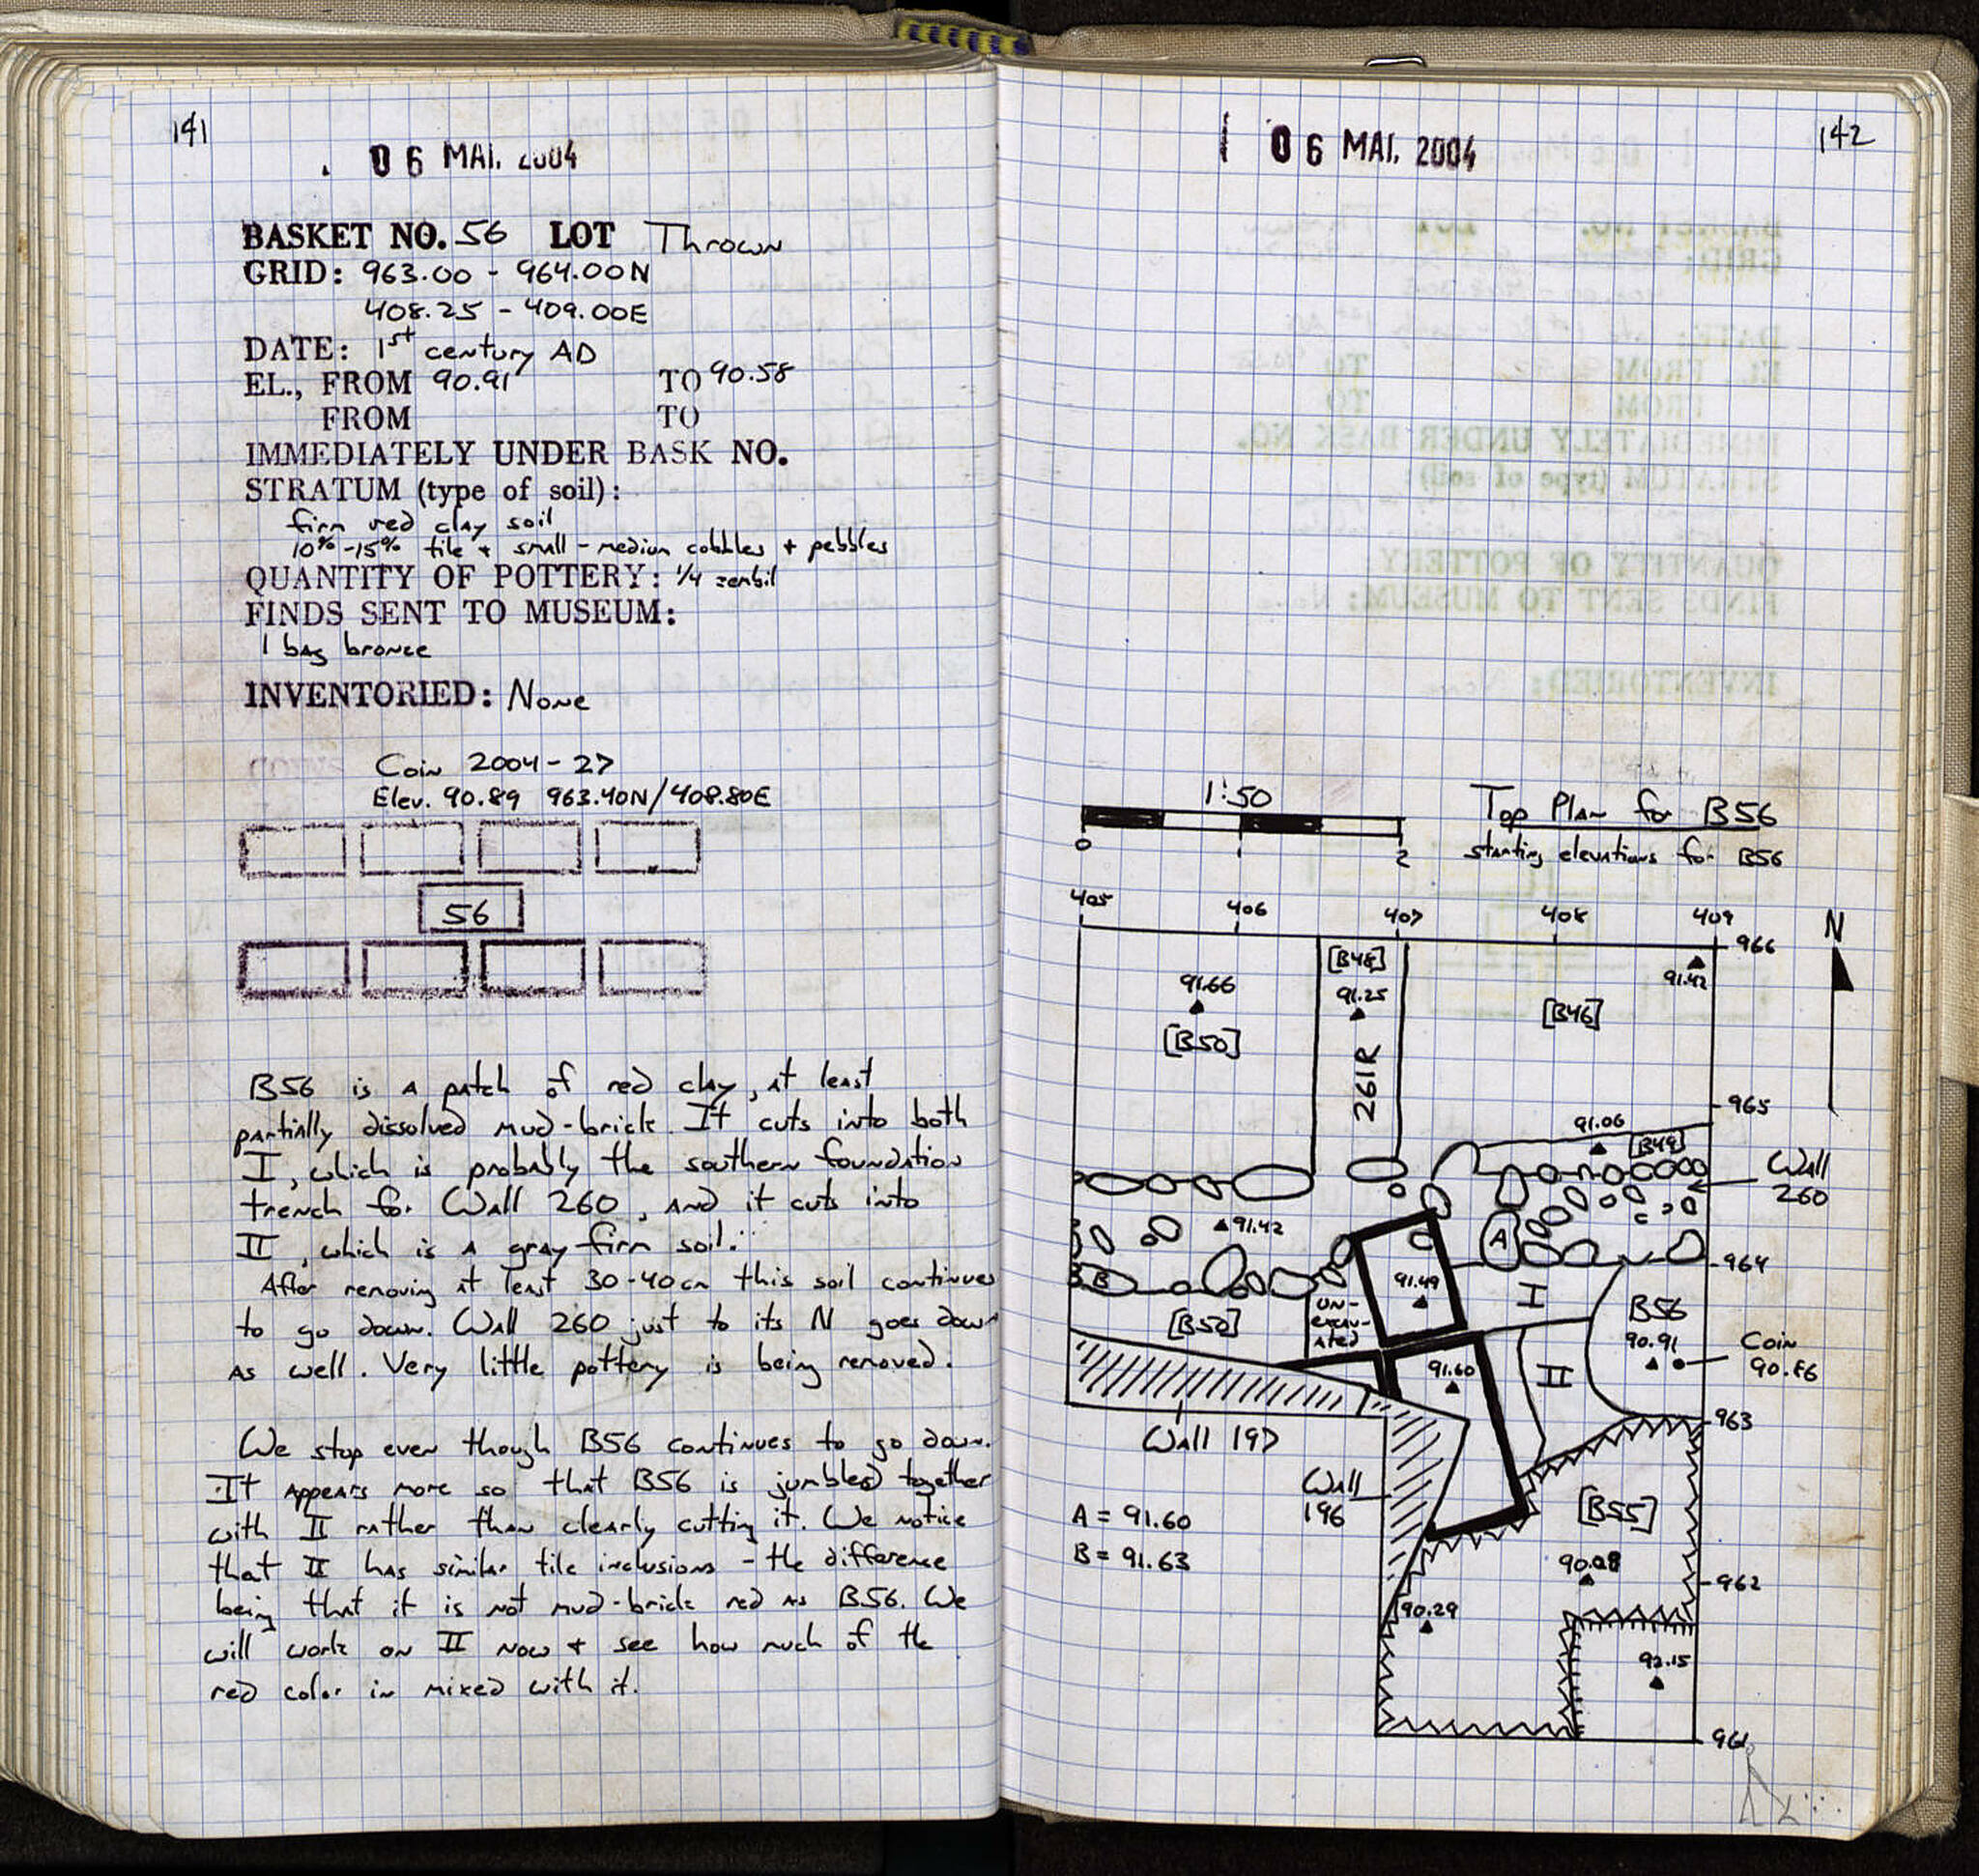 141
06 MAI. 2004
BASKET NO. 56 LOT Thrown
GRID: 963.00 - 964.00N
408.25 - 409.00E
DATE: 1st century AD
EL., FROM 90.91 TO 90.58
FROM TO
IMMEDIATELY UNDER BASK NO.
STRATUM (type of soil):
firm red clay soil
10%-15% tile + small-medium cobbles + pebbles
QUANTITY OF POTTERY: 1/4 zembil
FINDS SENT TO MUSEUM:
1 bag bronze
INVENTORIED: None
Coin 2004-27
Elev. 90.89 963.40N/408.80E
56
B56 is a patch of red clay, at least
partially dissolved mud-brick. It cuts into both
I, which is probably the southern foundation
trench for Wall 260, and it cuts into
II, which is a gray firm soil.
After removing at least 30-40cm this soil continues
to go down. Wall 260 just to its N goes down
as well. Very little pottery is being removed.
We stop even though B56 continues to go down.
It appears more so that B56 is jumbled together
with II rather than clearly cutting it. We notice
that II has similar tile inclusions - the difference
being that it is not mud-brick red as B56. We
will work on II now + see how much of the
red color in mixed with it.
06 MAI. 2004
142
1:50
0 1 2
Top Plan for B56
starting elevations for B56
405 406 407 408 409
N
966
[B48]
91.42
91.66
91.25
[B46]
[B50]
261R
965
91.06
[B49]
Wall
260
91.42
A
964
B
91.49
I
[B50]
UN-
EXCAV-
ATED
B56
90.91
Coin
90.86
91.60
II
963
Wall 197
Wall
196
A = 91.60
B = 91.63
[B55]
962
90.29
92.15
961